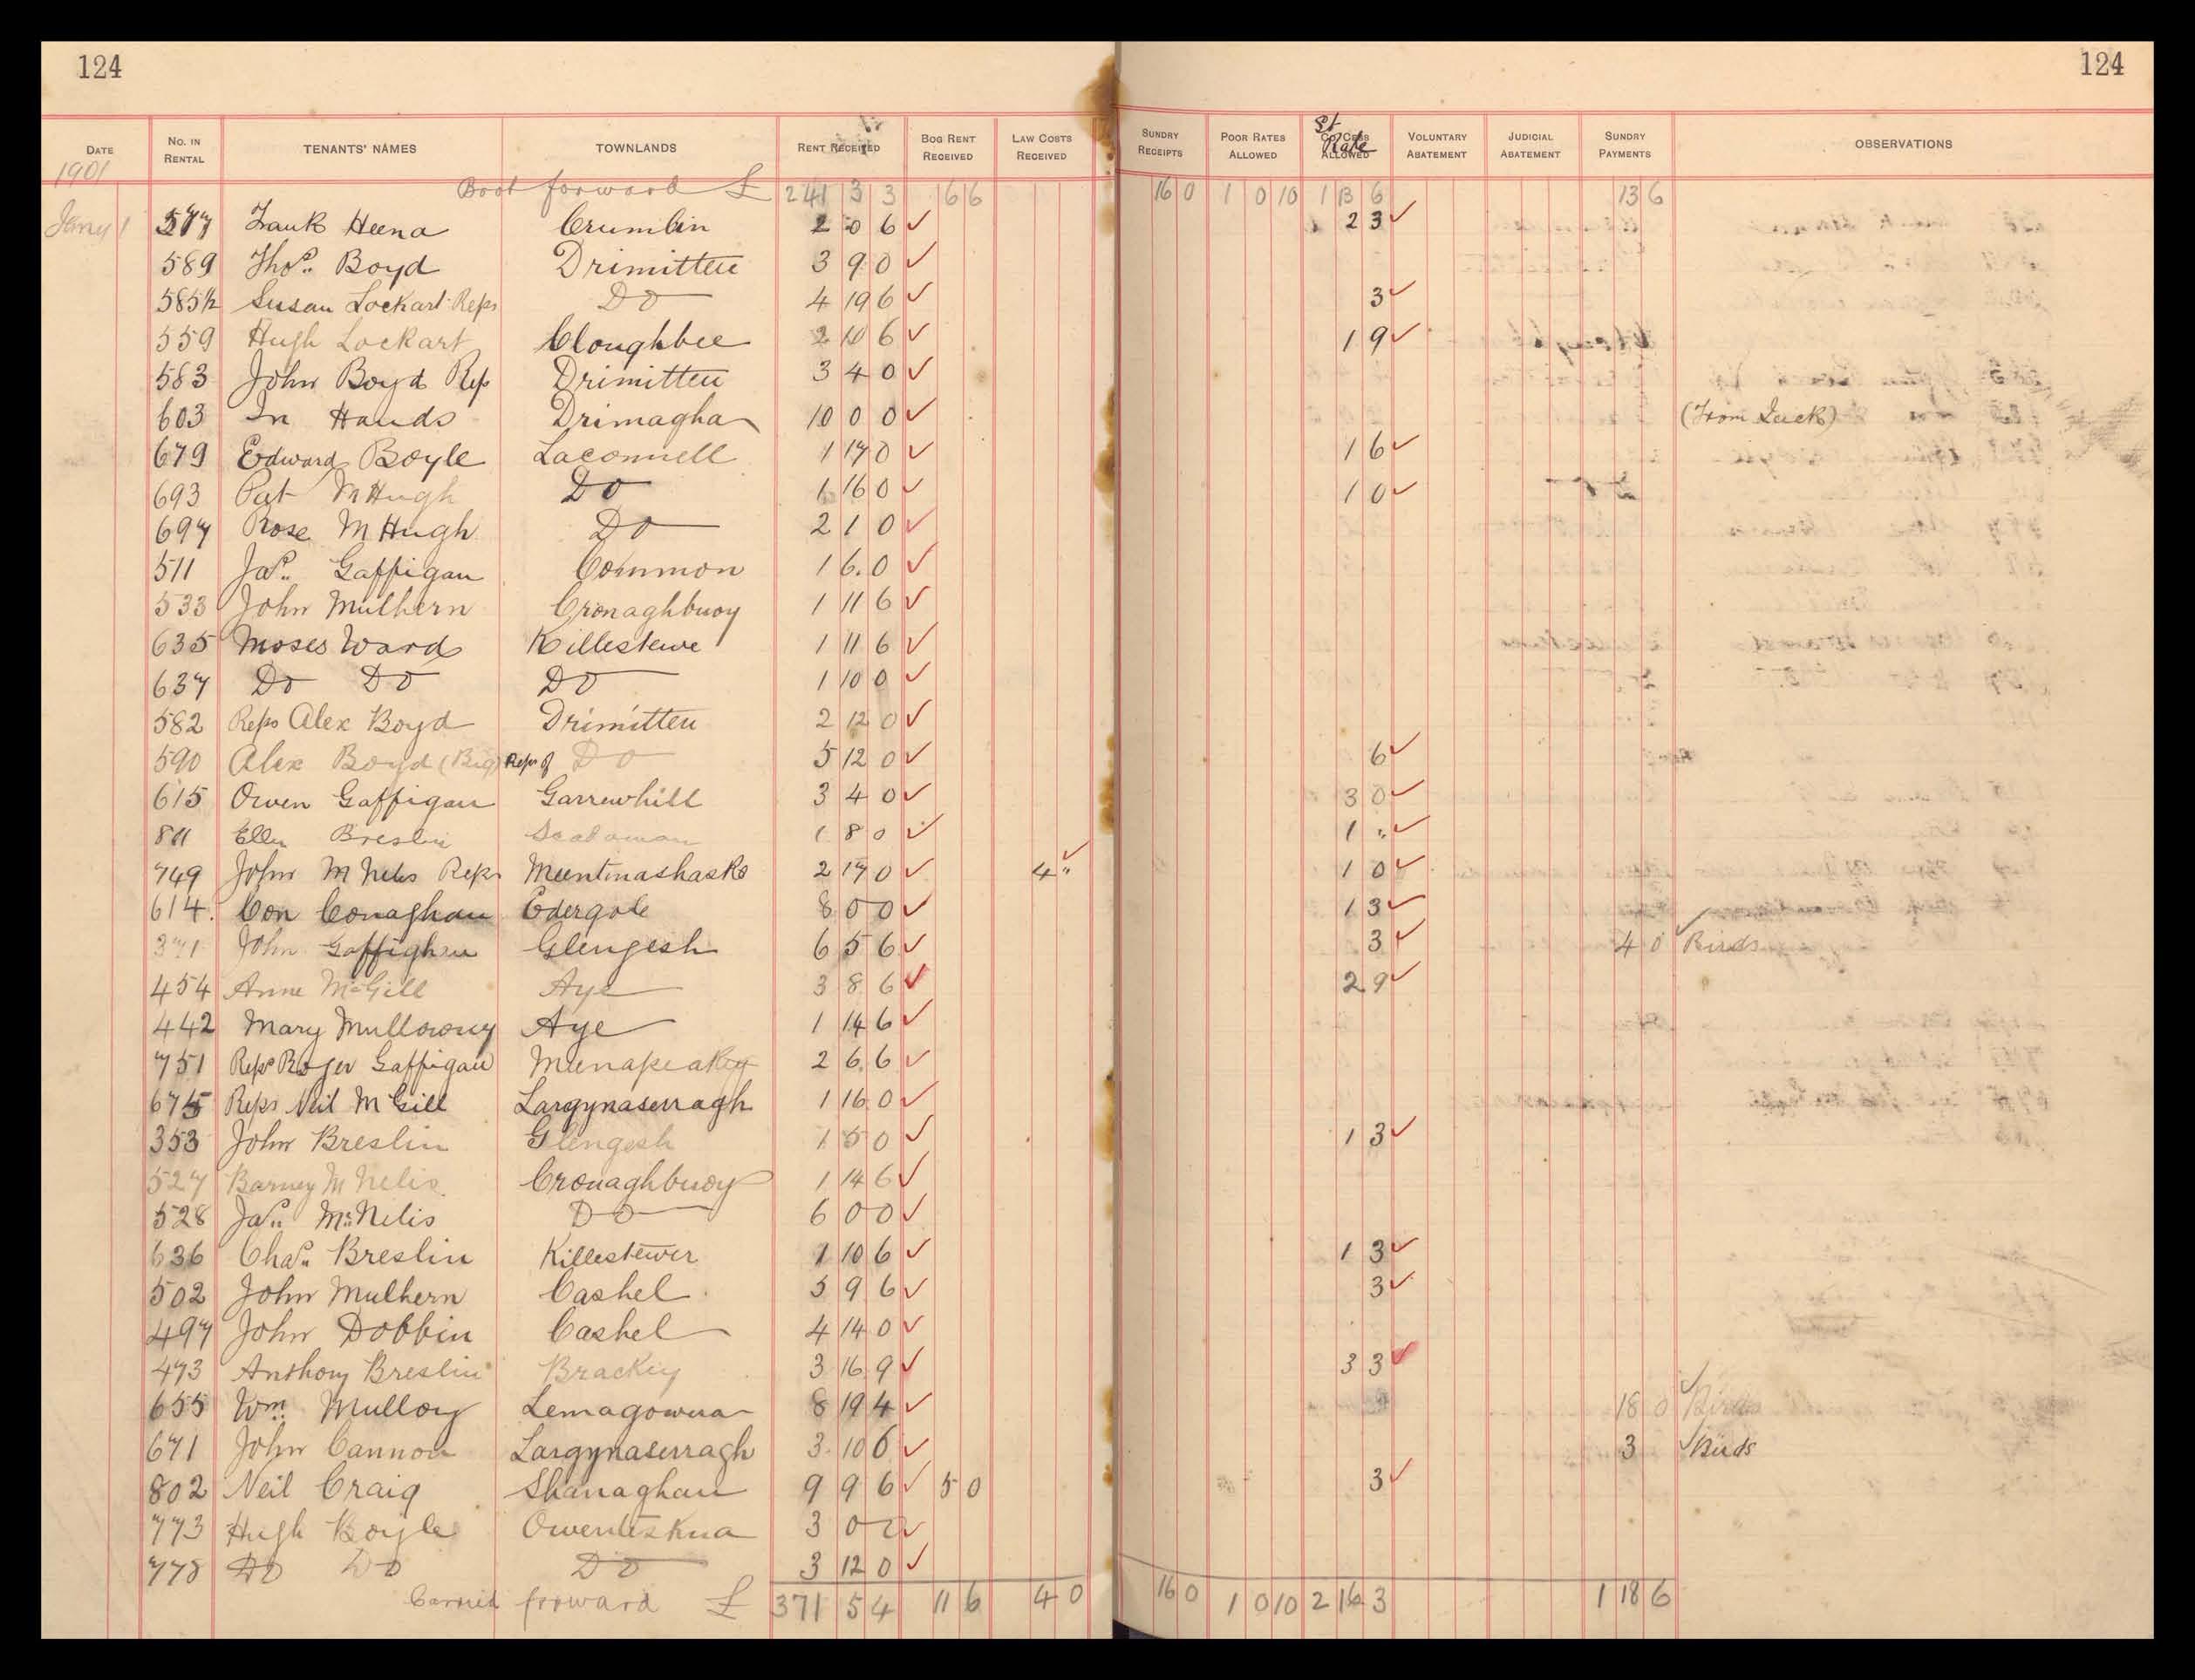 124 124
DATE NO. IN RENTAL TENANTS' NAMES TOWNLANDS RENT RECEIVED BOG RENT RECEIVED LAW COSTS RECEIVED SUNDRY RECEIPTS POOR RATES ALLOWED CO. CESS ALLOWED St Rate VOLUNTARY ABATEMENT JUDICIAL ABATEMENT SUNDRY PAYMENTS OBSERVATIONS
1901
Brot forward £ 241 3 3 6 6 16 0 1 0 10 1 13 6 13 6
Jany 1 577 Frank Heena Crumlin 2 0 6 ✓ 2 3 ✓
589 Thos. Boyd Drimitten 3 9 0 ✓
585½ Susan Lockart Reps Do 4 19 6 ✓ 3 ✓
559 Hugh Lockart Cloughbee 2 10 6 ✓ 1 9 ✓
583 John Boyd Rep Drimitten 3 4 0 ✓
603 In Hands Drimagha 10 0 0 ✓ (From Luck)
679 Edward Boyle Laconnell 1 17 0 ✓ 1 6 ✓
693 Pat McHugh Do 1 16 0 ✓ 1 0 ✓
697 Rose McHugh Do 2 1 0 ✓
511 Jas. Gaffigan Common 1 6 0 ✓
533 John Mulhern Cronaghbuoy 1 11 6 ✓
635 Moses Ward Killestewe 1 11 6 ✓
637 Do Do Do 1 10 0 ✓
582 Reps Alex Boyd Drimitten 2 12 0 ✓
590 Alex Boyd (Big) Reps of Do 5 12 0 ✓ 6 ✓
615 Owen Gaffigan Garrewhill 3 4 0 ✓ 3 0 ✓
811 Ellen Breslin Scadaman 1 8 0 ✓ 1 " ✓
749 John McNelis Reps Meentinashasko 2 17 0 ✓ 4 " ✓ 1 0 ✓
614. Con Conaghan Edergole 8 0 0 ✓ 1 3 ✓
371 John Gaffighan Glengesh 6 5 6 ✓ 3 ✓ 4 0 ✓ Birds
454 Anne McGill Aye 3 8 6 ✓ 2 9 ✓
442 Mary Mullowny Aye 1 14 6 ✓
751 Reps Roger Gaffigan Meenapeakey 2 6 6 ✓
675 Reps Neil McGill Largynaserragh 1 16 0 ✓
353 John Breslin Glengesh 1 5 0 ✓ 1 3 ✓
527 Barney McNelis Cronaghbuoy 1 14 6 ✓
528 Jas. McNelis Do 6 0 0 ✓
636 Chas. Breslin Killestewer 1 10 6 ✓ 1 3 ✓
502 John Mulhern Cashel 5 9 6 ✓ 3 ✓
497 John Dobbin Cashel 4 14 0 ✓
473 Anthony Breslin Brackey 3 16 9 ✓ 3 3 ✓
655 Wm. Mulloy Lemagowra 8 19 4 ✓ 18 0 ✓ Birds
671 John Cannon Largynaserragh 3 10 6 ✓ 3 ✓ Birds
802 Neil Craig Shanaghan 9 9 6 ✓ 5 0 3 ✓
773 Hugh Boyle Owenteskna 3 0 0 ✓
778 Do Do Do 3 12 0 ✓
Carried forward £ 371 5 4 11 6 4 0 16 0 1 0 10 2 16 3 1 18 6